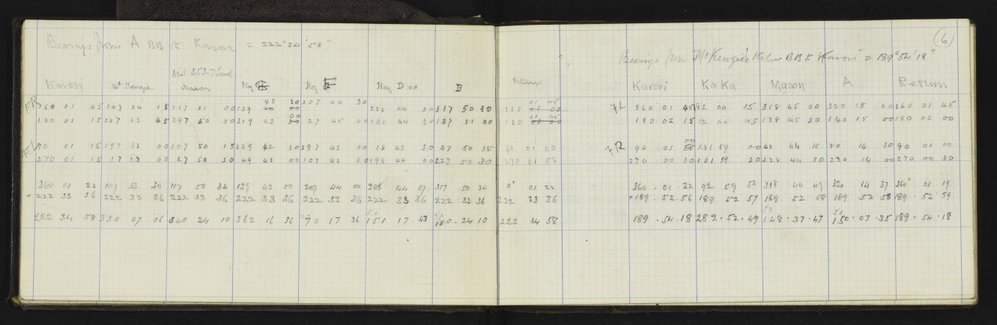 Bearings from A BB to Karori = 222° 34' 58"
Karori Mc Kenzie Mason Flag Flag Flag D 00 E Return
360 01 45 107 34 15 117 51 00 129 43 30 207 44 30 288 44 30 317 50 30
180 01 15 287 33 45 297 50 30 319 43 00 27 45 00 108 44 30 137 51 00 180
90 01 15 197 33 00 207 50 15 229 42 30 297 43 00 18 43 30 47 50 15 90 01 15
270 01 15 17 33 00 27 50 30 49 43 00 107 43 30 198 44 00 227 50 30 270 01 03
360 01 22 107 33 30 117 50 34 139 43 00 207 44 00 288 44 07 317 50 34 0° 01 22
+ 222 33 36 222 33 36 222 33 36 222 33 36 222 33 36 222 33 36 222 33 36 222 33 36
222 34 58 330 07 06 340 24 10 362 16 36 70 17 36 151 17 43 180 . 24 . 10 222 34 58
(6)
Bearings from McKenzie's BB to Karori = 189° 54' 18"
Karori KaKa Mason A Return
F L 360 01 45 92 00 15 318 45 00 320 15 00 360 01 45
180 02 15 12 00 45 138 45 30 140 15 00 180 02 00
F R 90 01 00 48 44 15 50 14 30 90 01 00
270 00 30 181 59 30 228 44 30 230 14 00 270 00 30
360 . 01 . 22 92 59 52 318 44 49 320 14 37 360° 01 19
+189 . 52 56 189 52 57 189 52 58 189 52 58 189 . 52 59
189 . 54 . 18 282 . 52 . 49 148 . 37 . 47 150 . 07 . 35 189 . 54 . 18